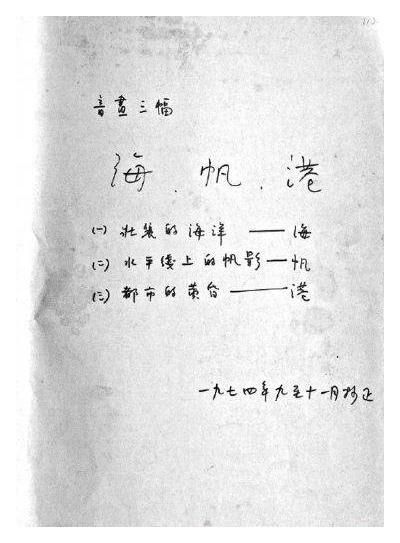 音畫三幅
海．帆．港
㈠ 壯美的海洋 —— 海
㈡ 水平线上的帆影 — 帆
㈢ 都市的黄昏 —— 港
一九七四年九至十一月校正